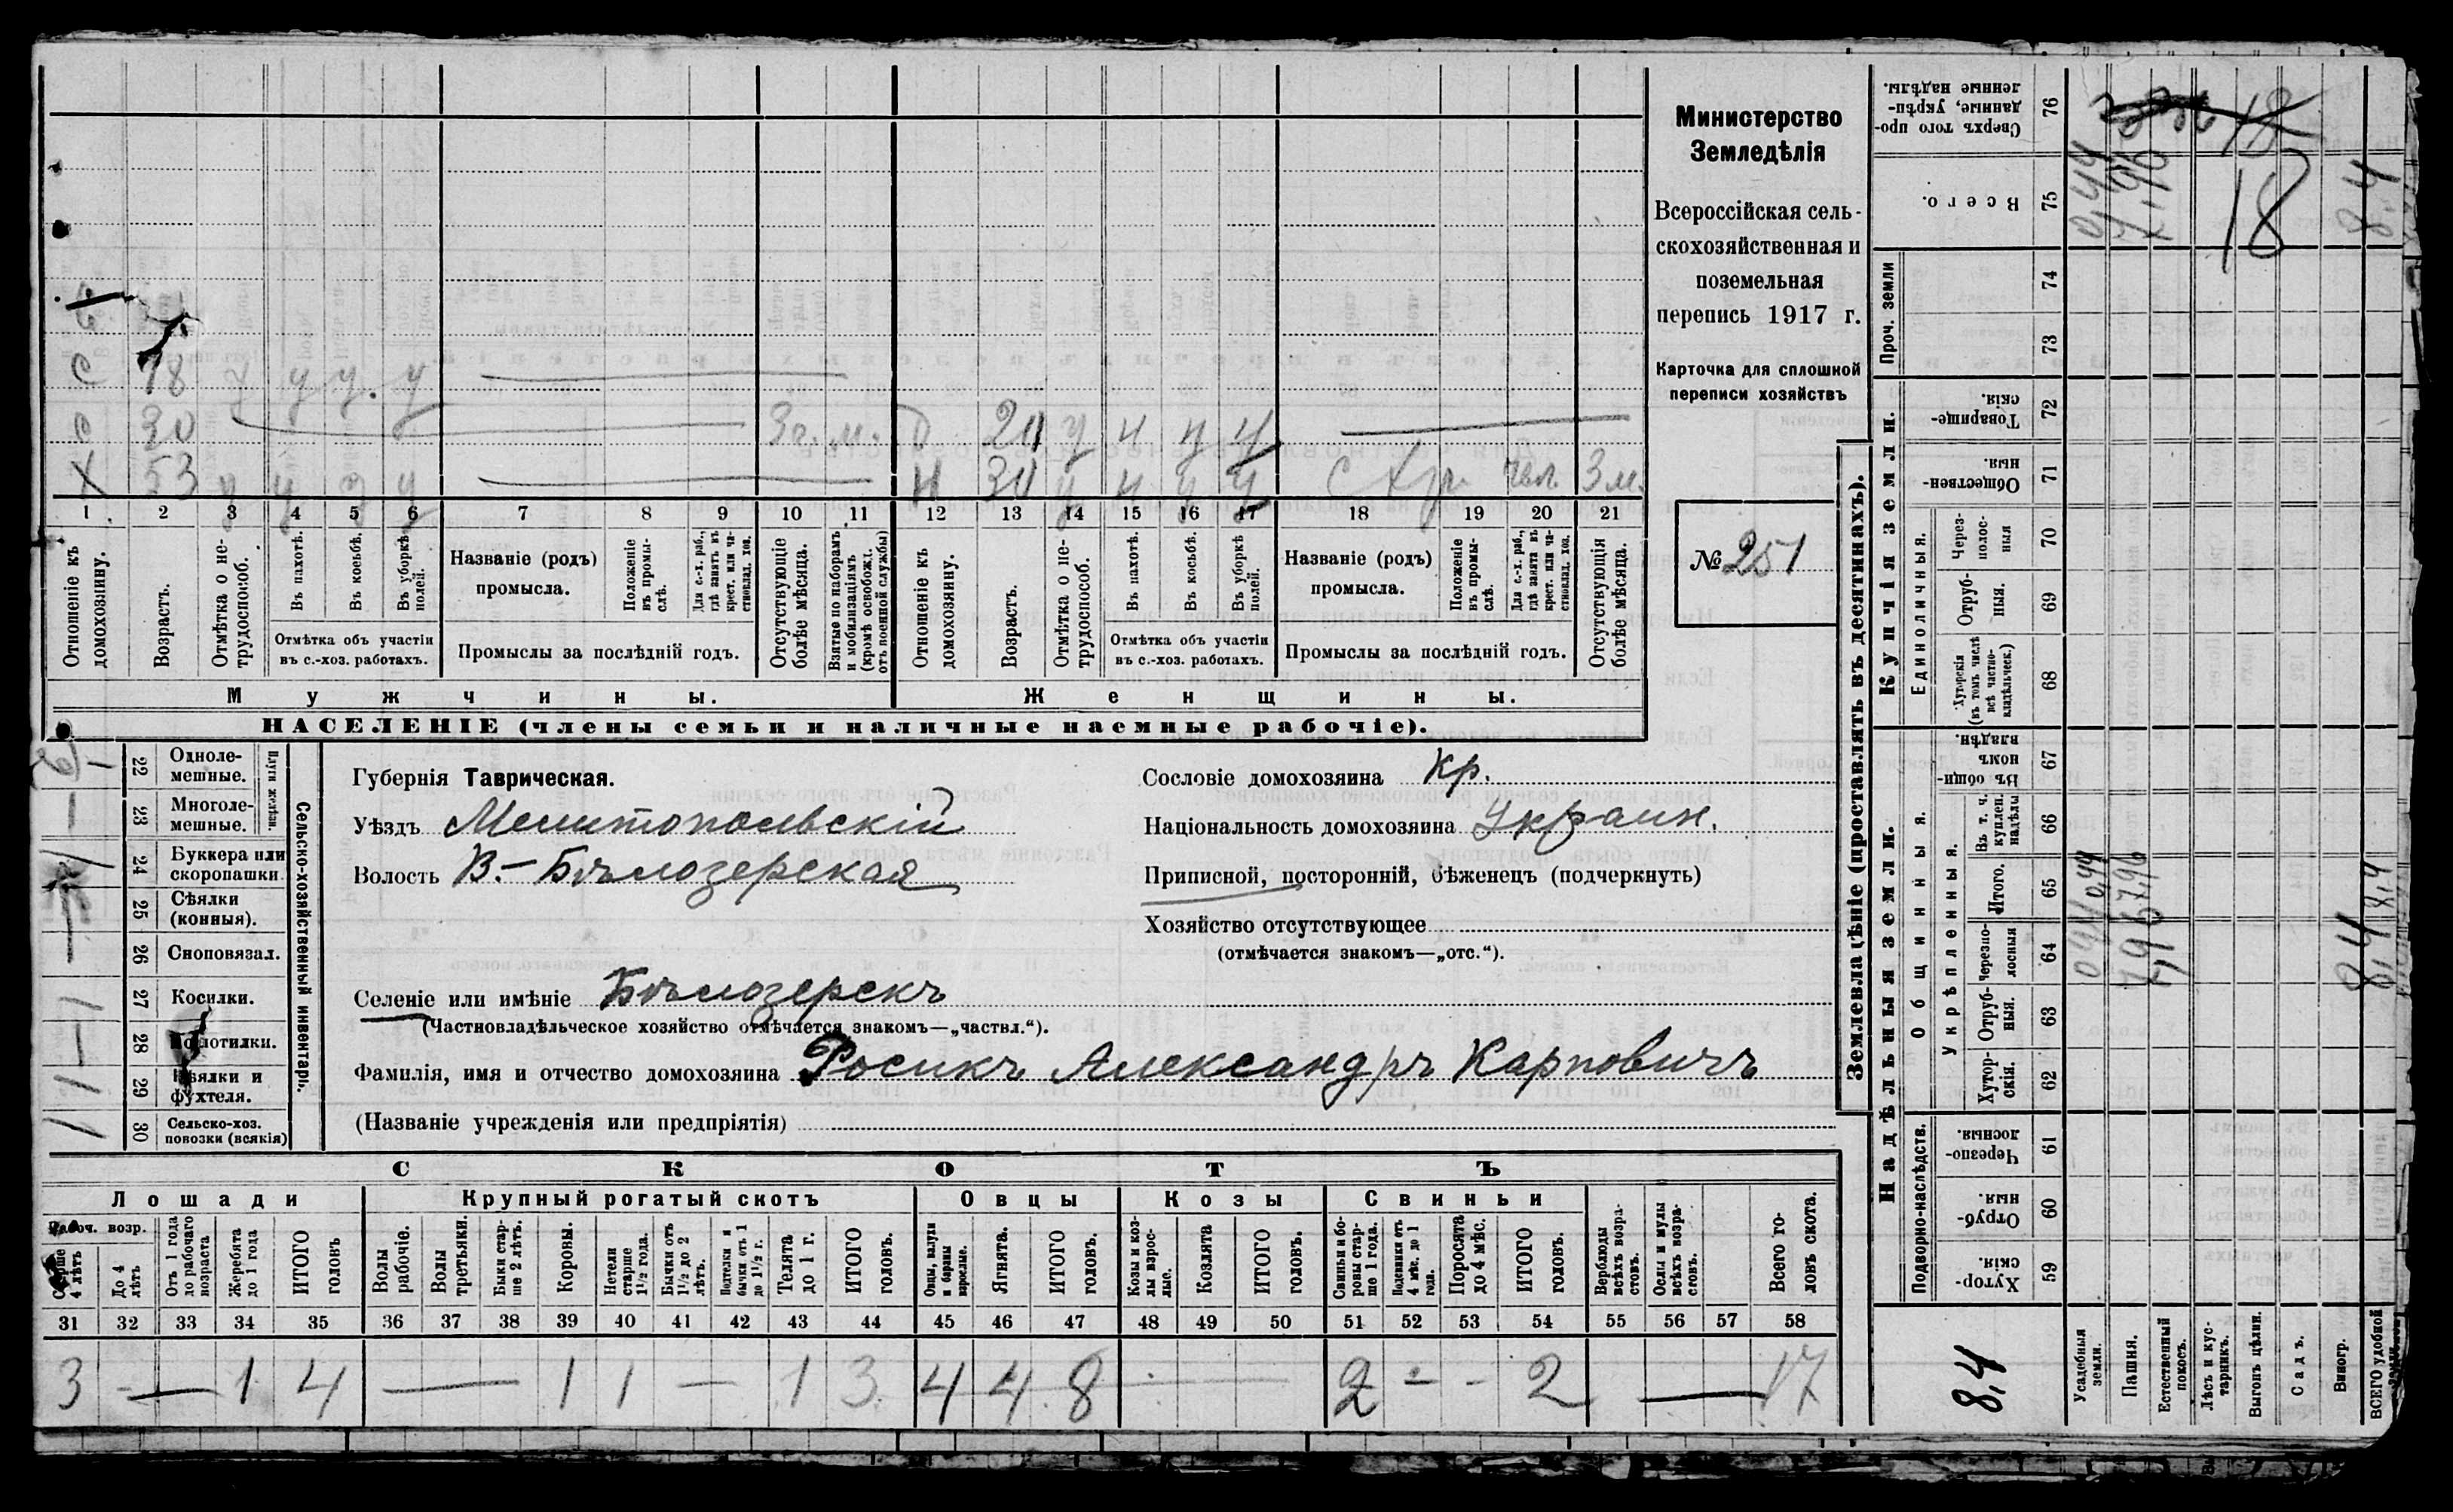 С 18 у у у. у
С 30 3 г. м. D 20 у ч у у
Х 53 у у у у Н 30 у ч у у С Хр. чвл. 3 м.
1 2 3 4 5 6 7 8 9 10 11 12 13 14 15 16 17 18 19 20 21
Отношеніе къ домохозяину.
Возрастъ.
Отмѣтка о нетрудоспособ.
Въ пахотѣ.
Въ косьбѣ.
Въ уборкѣ полей.
Отмѣтка объ участіи
въ с.-хоз. работахъ.
Названіе (родъ)
промысла.
Положеніе въ промыслѣ.
Для с.-х. раб., гдѣ занятъ въ крест. или частновлад. хоз.
Промыслы за послѣдній годъ.
Отсутствующіе болѣе мѣсяца.
Взятые по наборамъ и мобилизаціямъ (кромѣ освобожд. отъ военной службы)
Отношеніе къ домохозяину.
Возрастъ.
Отмѣтка о нетрудоспособ.
Въ пахотѣ.
Въ косьбѣ.
Въ уборкѣ полей.
Отмѣтка объ участіи
въ с.-хоз. работахъ.
Названіе (родъ)
промысла.
Положеніе въ промыслѣ.
Для с.-х. раб., гдѣ занята въ крест. или частновлад. хоз.
Промыслы за послѣдній годъ.
Отсутствующія болѣе мѣсяца.
Мужчины.
Женщины.
НАСЕЛЕНІЕ (члены семьи и наличные наемные рабочіе).
Министерство
Земледѣлія
Всероссійская сель-
скохозяйственная и
поземельная
перепись 1917 г.
Карточка для сплошной
переписи хозяйствъ
№ 251
22 Одноле-
мешные.
23 Многоле-
мешные.
Плуги желѣзн.
24 Буккера или
скоропашки
25 Сѣялки
(конныя).
26 Сноповязал.
27 Косилки.
28 Молотилки.
29 Вѣялки и
фухтеля.
30 Сельско-хоз.
повозки (всякія)
Сельско-хозяйственный инвентарь.
Губернія Таврическая.
Уѣздъ Мелитопольскій
Волость В.-Бѣлозерская
Селеніе или имѣніе Бѣлозерскъ
(Частновладѣльческое хозяйство отмѣчается знакомъ—„частвл.“).
Фамилія, имя и отчество домохозяина Росикъ Александръ Карповичъ
(Названіе учрежденія или предпріятія)
Сословіе домохозяина Кр.
Національность домохозяина Украин.
Приписной, посторонній, бѣженецъ (подчеркнуть)
Хозяйство отсутствующее
(отмѣчается знакомъ—„отс.“).
СКОТЪ
Лошади Крупный рогатый скотъ Овцы Козы Свиньи
Рабоч. возр.
Старше 4 лѣтъ
До 4 лѣтъ
Отъ 1 года до рабочаго возраста
Жеребята до 1 года
ИТОГО головъ
Волы рабочіе.
Волы третьяки.
Быки старше 2 лѣтъ.
Коровы.
Нетели старше 1½ года.
Бычки отъ 1½ до 2 лѣтъ.
Подтелки и бычки отъ 1 до 1½ г.
Телята до 1 г.
ИТОГО головъ.
Овцы, валухи и бараны взрослые.
Ягнята.
ИТОГО головъ.
Козы и козлы взрослые.
Козлята
ИТОГО головъ.
Свиньи и боровы старше 1 года.
Подсвинки отъ 4 мѣс. до 1 года.
Поросята до 4 мѣс.
ИТОГО головъ.
Верблюды всѣхъ возрастовъ.
Ослы и мулы всѣхъ возрастовъ.
Всего головъ скота.
31 32 33 34 35 36 37 38 39 40 41 42 43 44 45 46 47 48 49 50 51 52 53 54 55 56 57 58
3 — 1 4 — 1 1 — 1 3 4 4 8 — 2 - - 2 — 17
Землевладѣніе (проставлять въ десятинахъ).
Купчія земли.
Надѣльныя земли.
Сверхъ того проданные, укрѣпленные надѣлы. 76
Всего. 75 0,44 7,96 18 8,4
Проч. земли 74 73
Товарищескія. 72
Общественныя. 71
Единоличныя.
Черезполосныя 70
Отрубныя. 69
Хуторскія (въ томъ числѣ всѣ частновладѣльческ.) 68
Общинныя.
Въ общинномъ владѣн. 67
Укрѣпленныя.
Въ т. ч. куплен. надѣлы 66
Итого. 65 0,44 7,96 8,4
Черезполосныя 64 0,44 7,96 8,4
Отрубныя. 63
Хуторскія. 62
Подворно-наслѣдств.
Черезполосныя. 61
Отрубныя. 60
Хуторскія. 59
8,4
Усадебныя земли.
Пашня.
Естественный покосъ.
Лѣсъ и кустарникъ.
Выгонъ цѣлин.
Садъ.
Виногр.
ВСЕГО удобной земли.